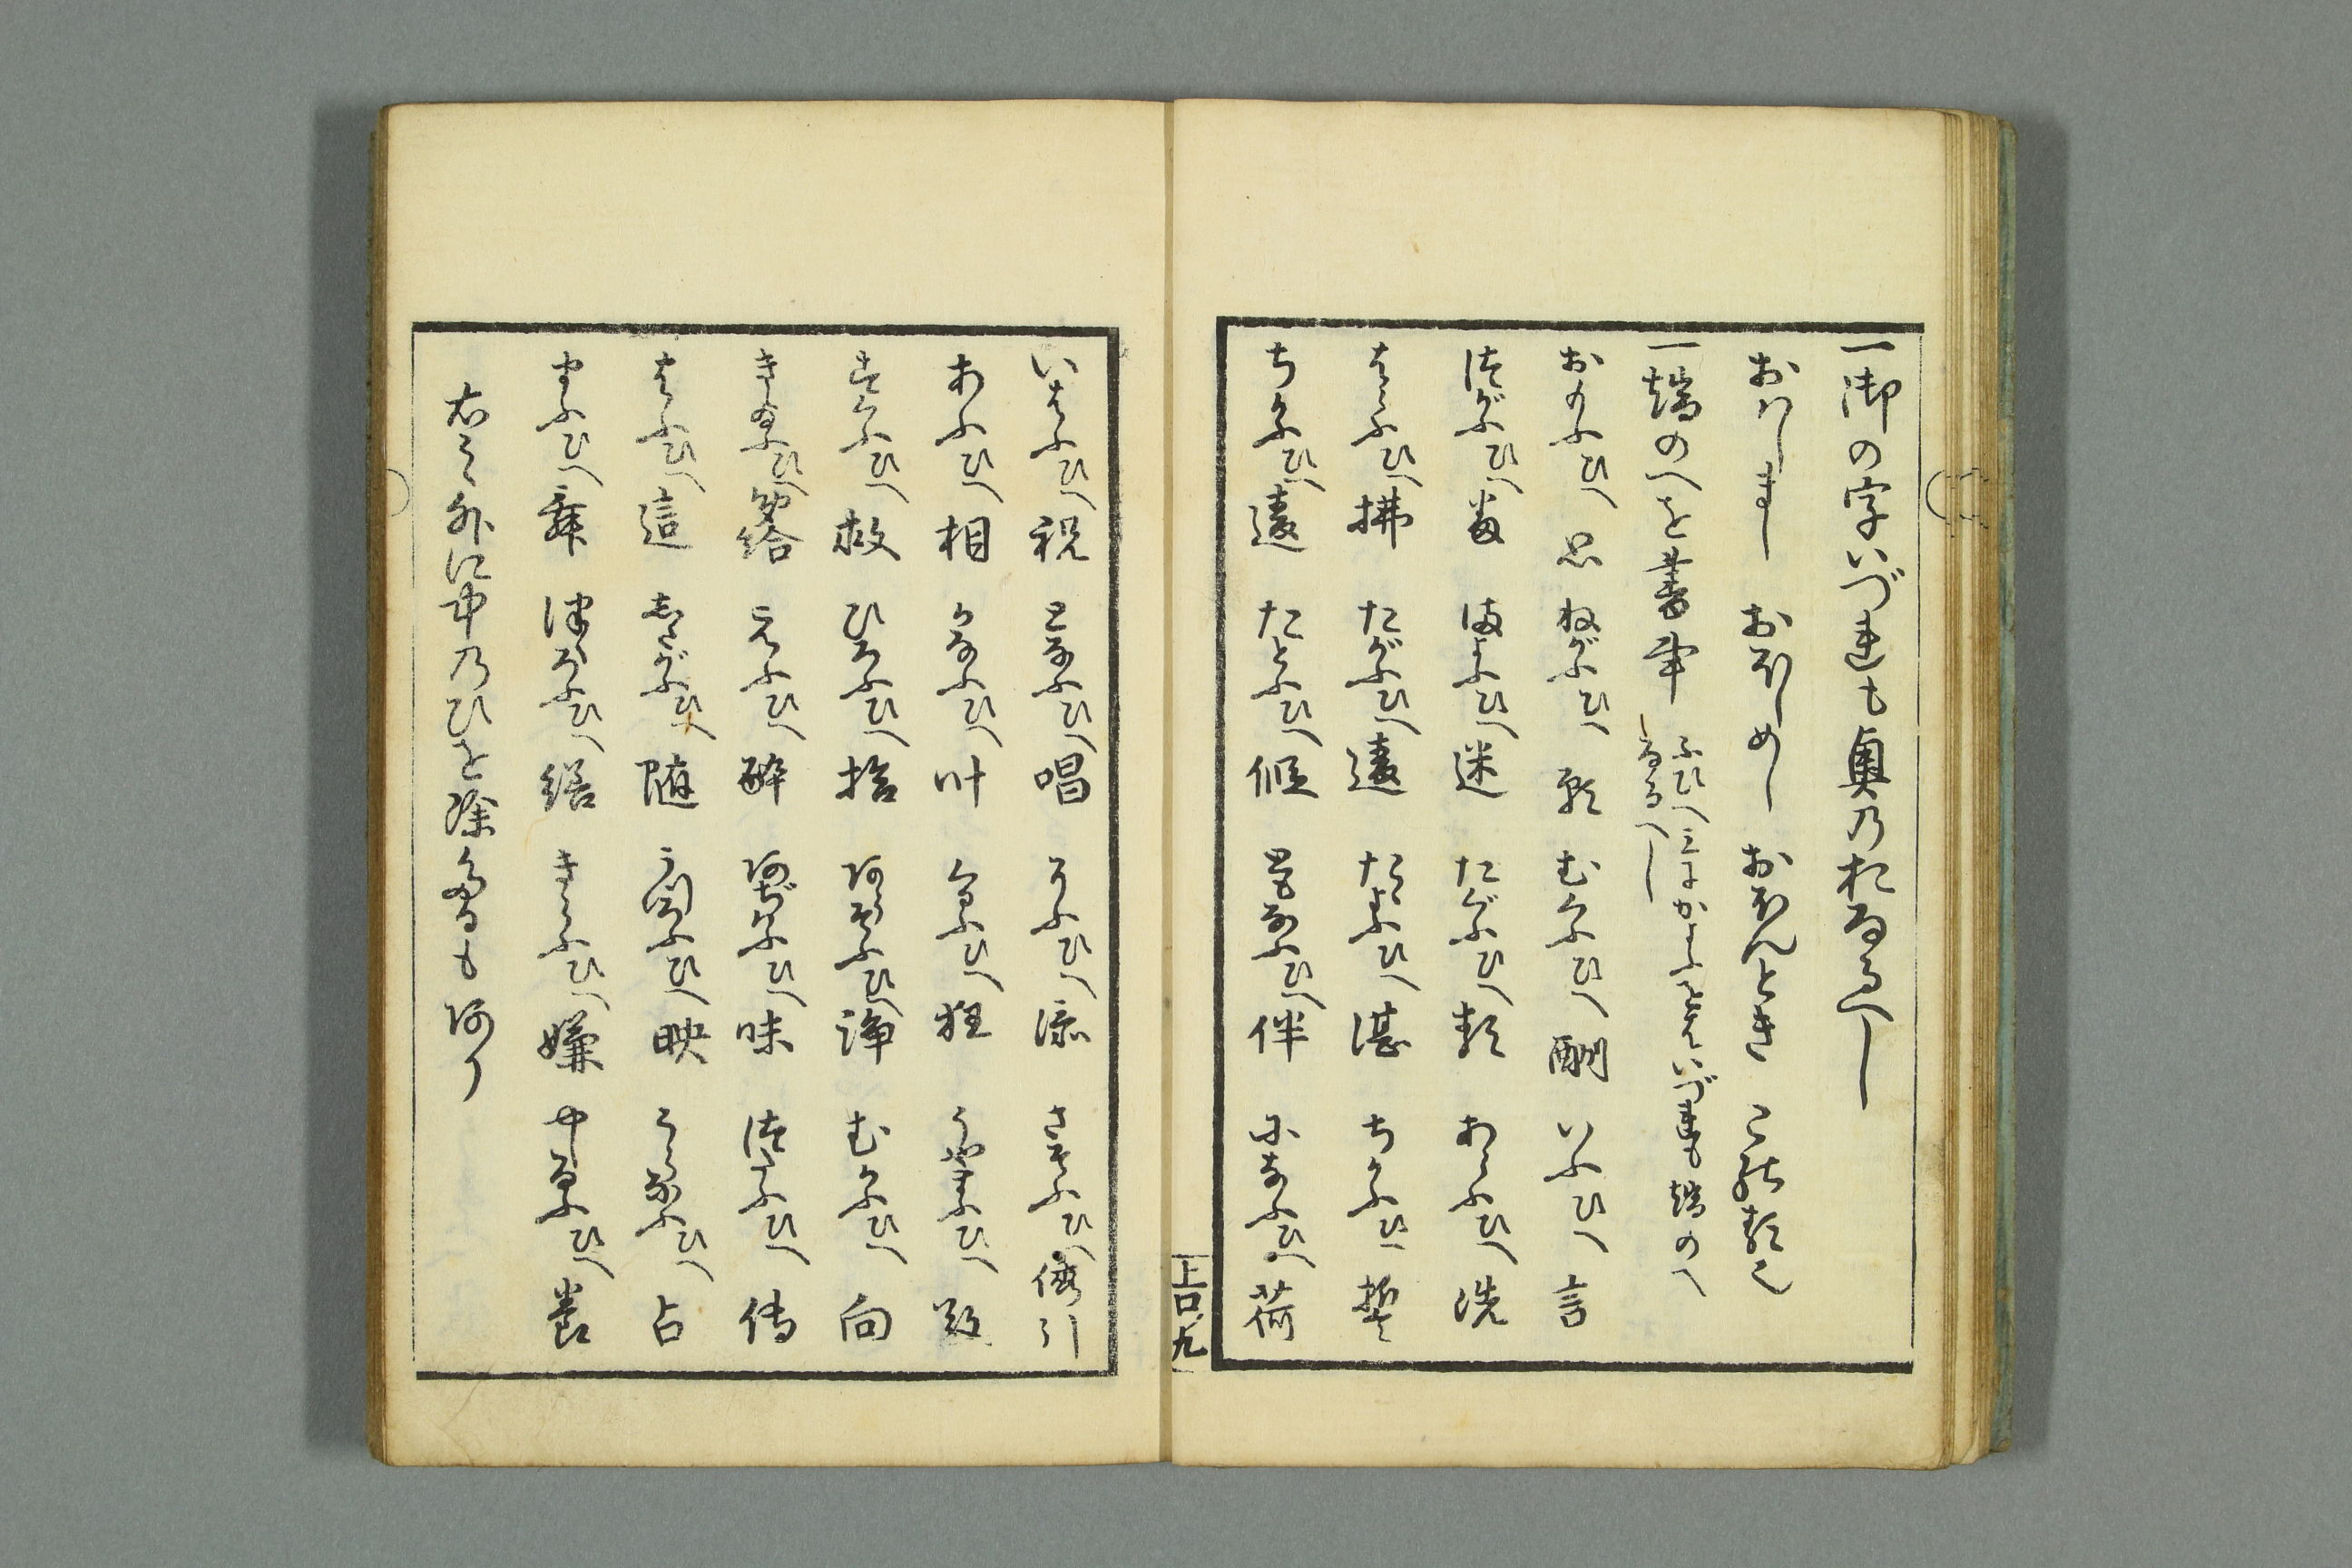 一御の字いづれも奥のおなるべし
おはしまし おぼしめし おぼんとき この類也
一端のへを書事 ふひへ三にかよふときはいづれも端のへ
なるべし
おもふひへ 思 ねがふひへ 願 むくふひへ 酬 いふひへ 言
つがふひへ 番 まよふひへ 迷 たぐふひへ 類 あらふひへ 洗
はらふひへ 拂 たがふひへ 違 たたふひへ 湛 ちかふひへ 誓
ちがふひへ 違 たとふひへ 假 ともなふひへ 伴 になふひへ 荷
上口ノ九
いはふひへ 祝 となふひへ 唱 そふひへ 添 さそふひへ 倡引
あふひへ 相 かなふひへ 叶 くるふひへ 狂 うやまふひへ 敬
すくふひへ 救 ひろふひへ 拾 あらそふひへ 諍 むかふひへ 向
きらふひへ えふひへ 酔 あぢはふひへ 味 つたふひへ 傳
はふひへ 這 したがふひへ 随 うつろふひへ 映 うらなふひへ 占
まふひへ 舞 つくろふひへ 繕 きらふひへ 嫌 やしなふひへ 養
右之外に中のひを除たるも有り